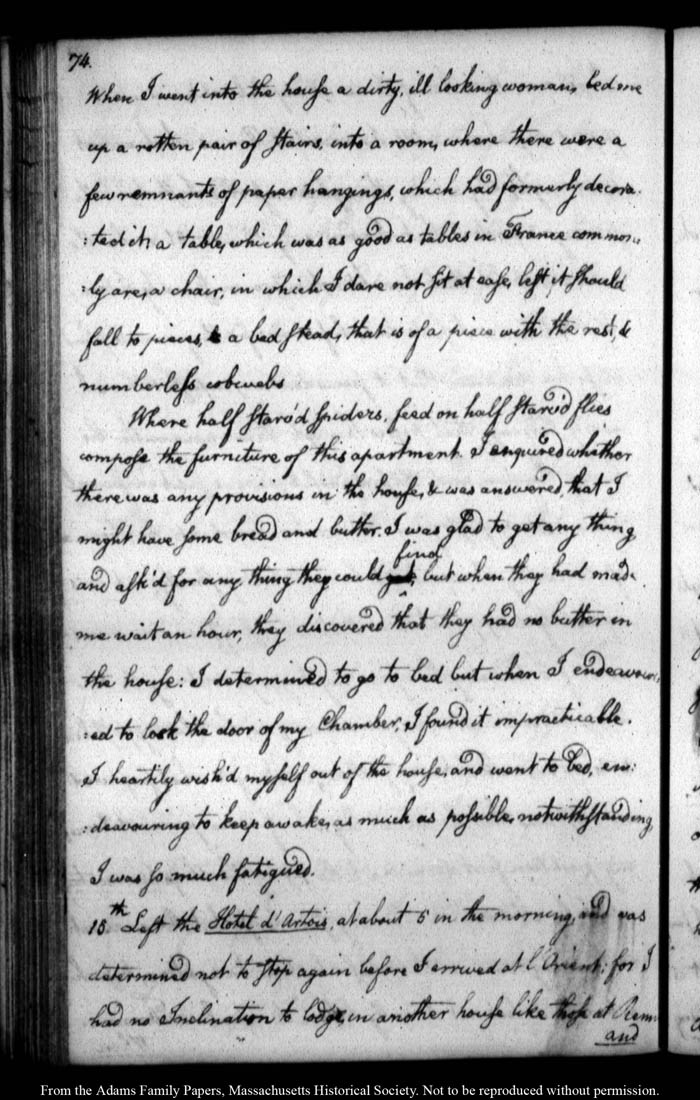 74.
When I went into the house a dirty, ill looking woman, led me
up a rotten pair of stairs, into a room, where there were a
few remnants of paper hangings, which had formerly decora:
:ted it, a table, which was as good as tables in France common:
:ly are, a chair, in which I dare not sit at ease, lest it should
fall to pieces, & a bed stead, that is of a piece with the rest, &
numberless cobwebs
Where half starv'd spiders, feed on half starv'd flies
compose the furniture of this apartment. I enquired whether
there was any provisions in the house, & was answered, that I
might have some bread and butter. I was glad to get any thing
find
and ask'd for any thing they could get, but when they had made
me wait an hour, they discovered that they had no butter in
the house: I determined to go to bed but when I endeavour:
:ed to lock the door of my Chamber, I found it impracticable.
I heartily wish'd myself out of the house, and went to bed, en:
:deavouring to keep awake, as much as possible, notwithstanding
I was so much fatigued.
15th Left the Hotel d'Artois, at about 5 in the morning, and was
determined not to stop again before I arrived at l'Orient: for I
had no Inclination to lodge in another house like those at Renn
and
From the Adams Family Papers, Massachusetts Historical Society. Not to be reproduced without permission.